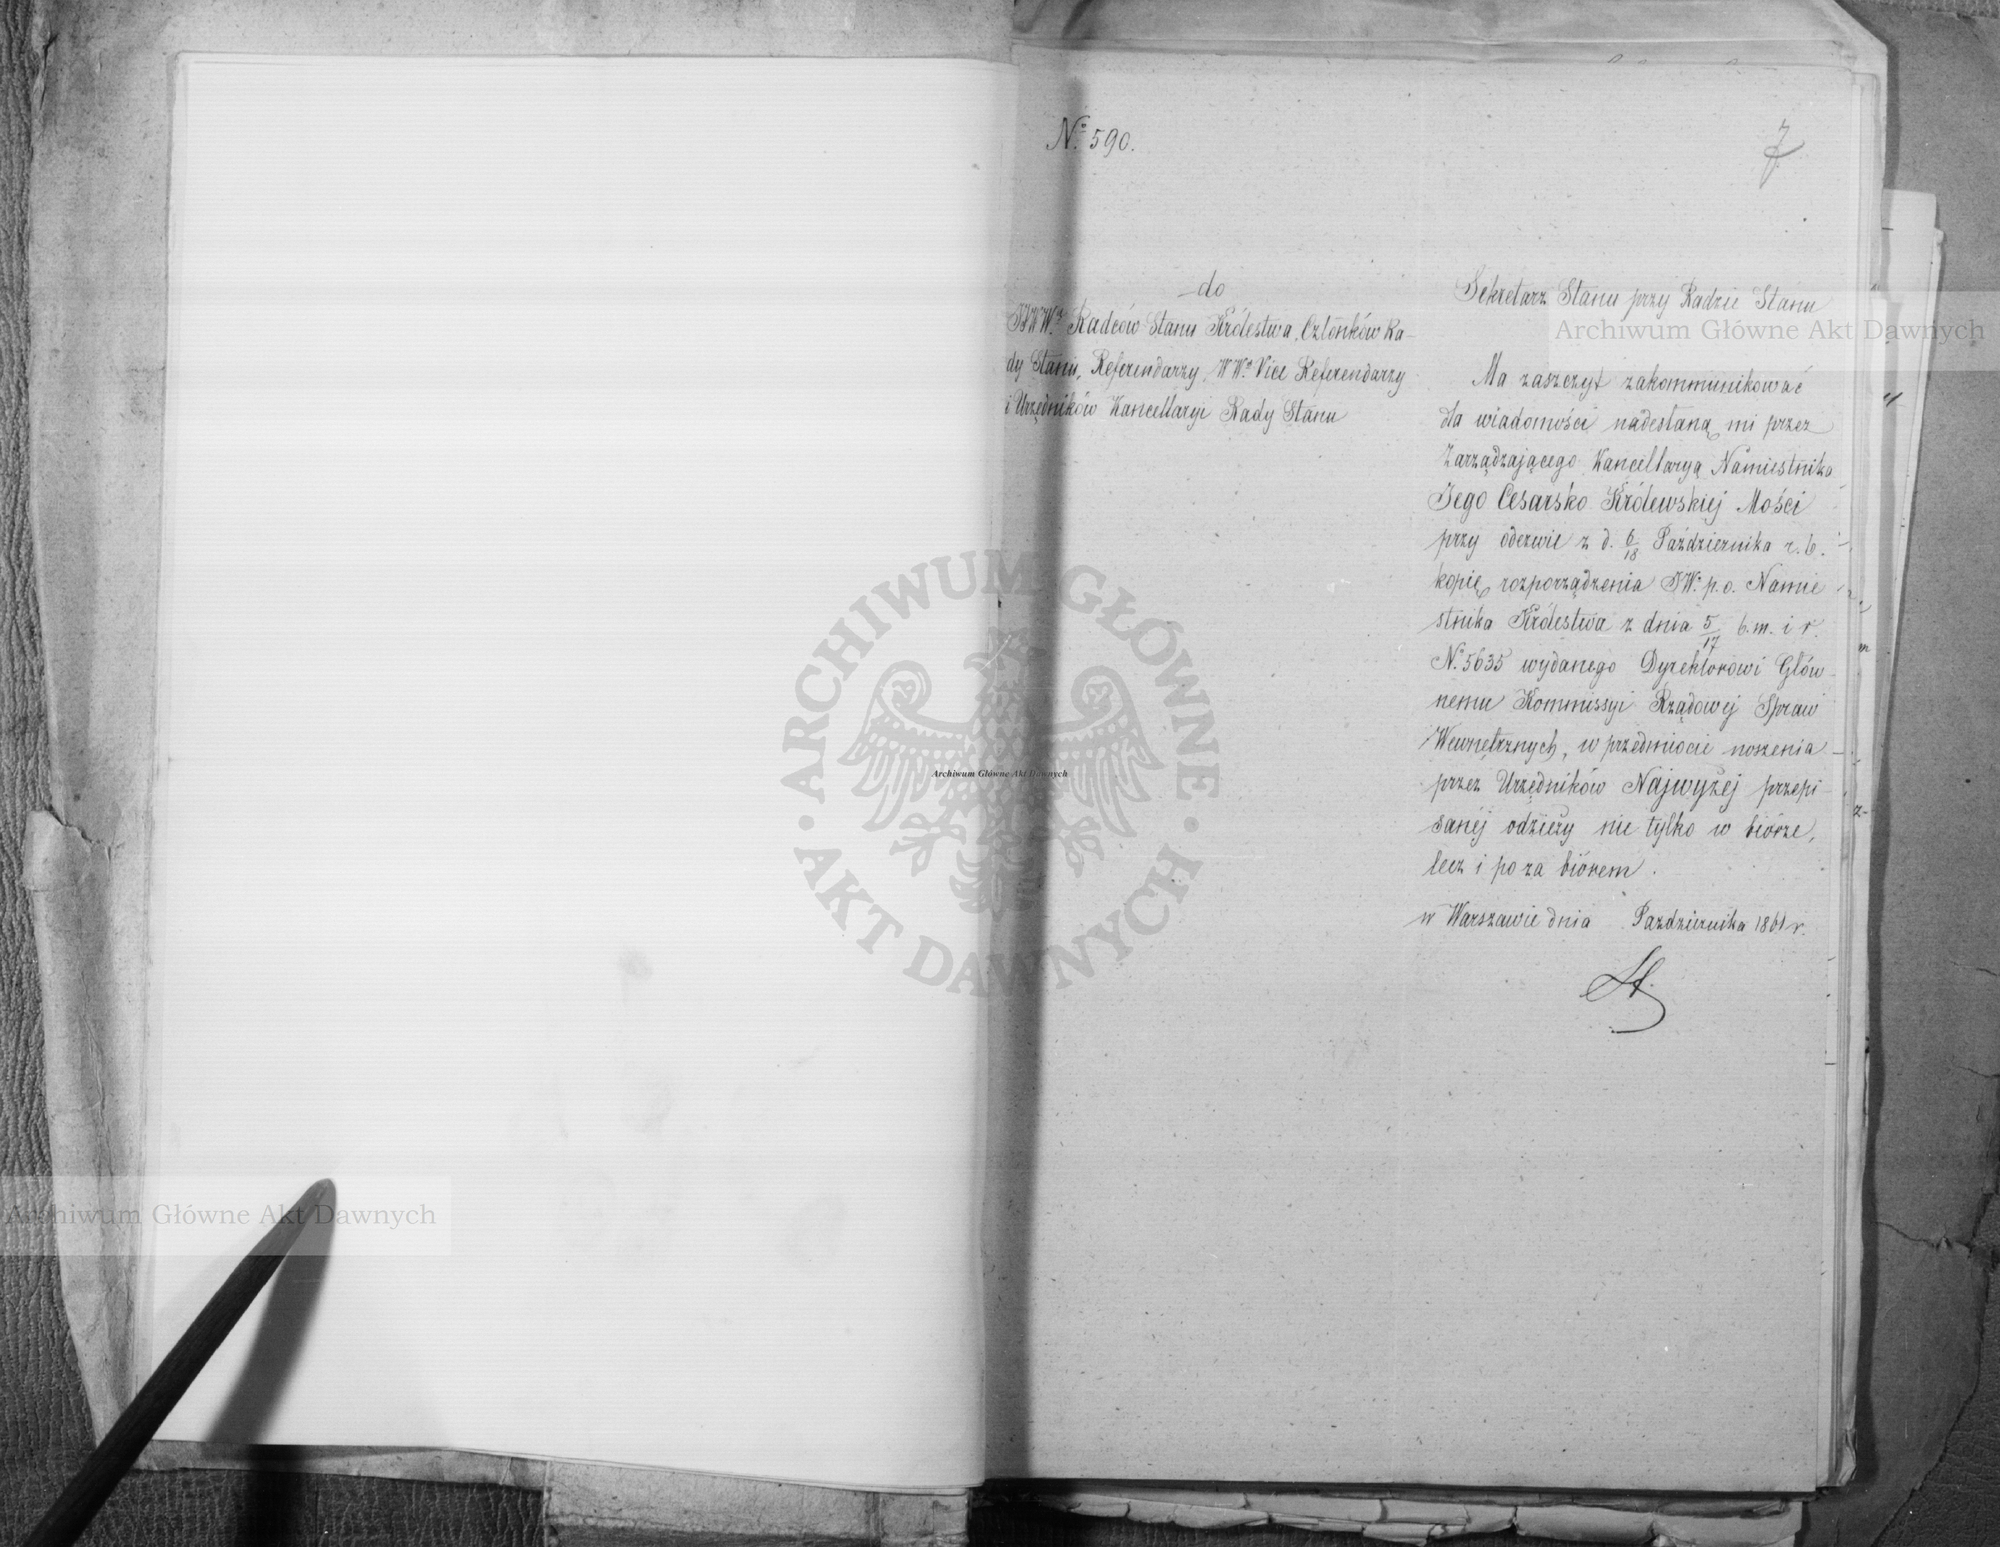 No. 590.
7
do
JWW. Radców Stanu Królestwa, Członków Ra-
dy Stanu, Referendarzy, WW. Vice Referendarzy
i Urzędników Kancellaryi Rady Stanu
Sekretarz Stanu przy Radzie Stanu
Ma zaszczyt zakommunikować
dla wiadomości nadesłaną mi przez
Zarządzającego Kancellaryą Namiestnika
Jego Cesarsko Królewskiej Mości
przy odezwie z d. 6/18 Października r. b.
kopię rozporządzenia JW. p. o. Namie
stnika Królestwa z dnia 5/17 b. m. i r.
N. 5635 wydanego Dyrektorowi Głów-
nemu Kommissyi Rządowej Spraw
Wewnętrznych, w przedmiocie noszenia
przez Urzędników Najwyżej przepi-
sanéj odzieży nie tylko w biórze,
lecz i po za biórem.
w Warszawie dnia Października 1861 r.
Archiwum Główne Akt Dawnych
Archiwum Główne Akt Dawnych
Archiwum Główne Akt Dawnych
ARCHIWUM GŁÓWNE
· AKT DAWNYCH ·